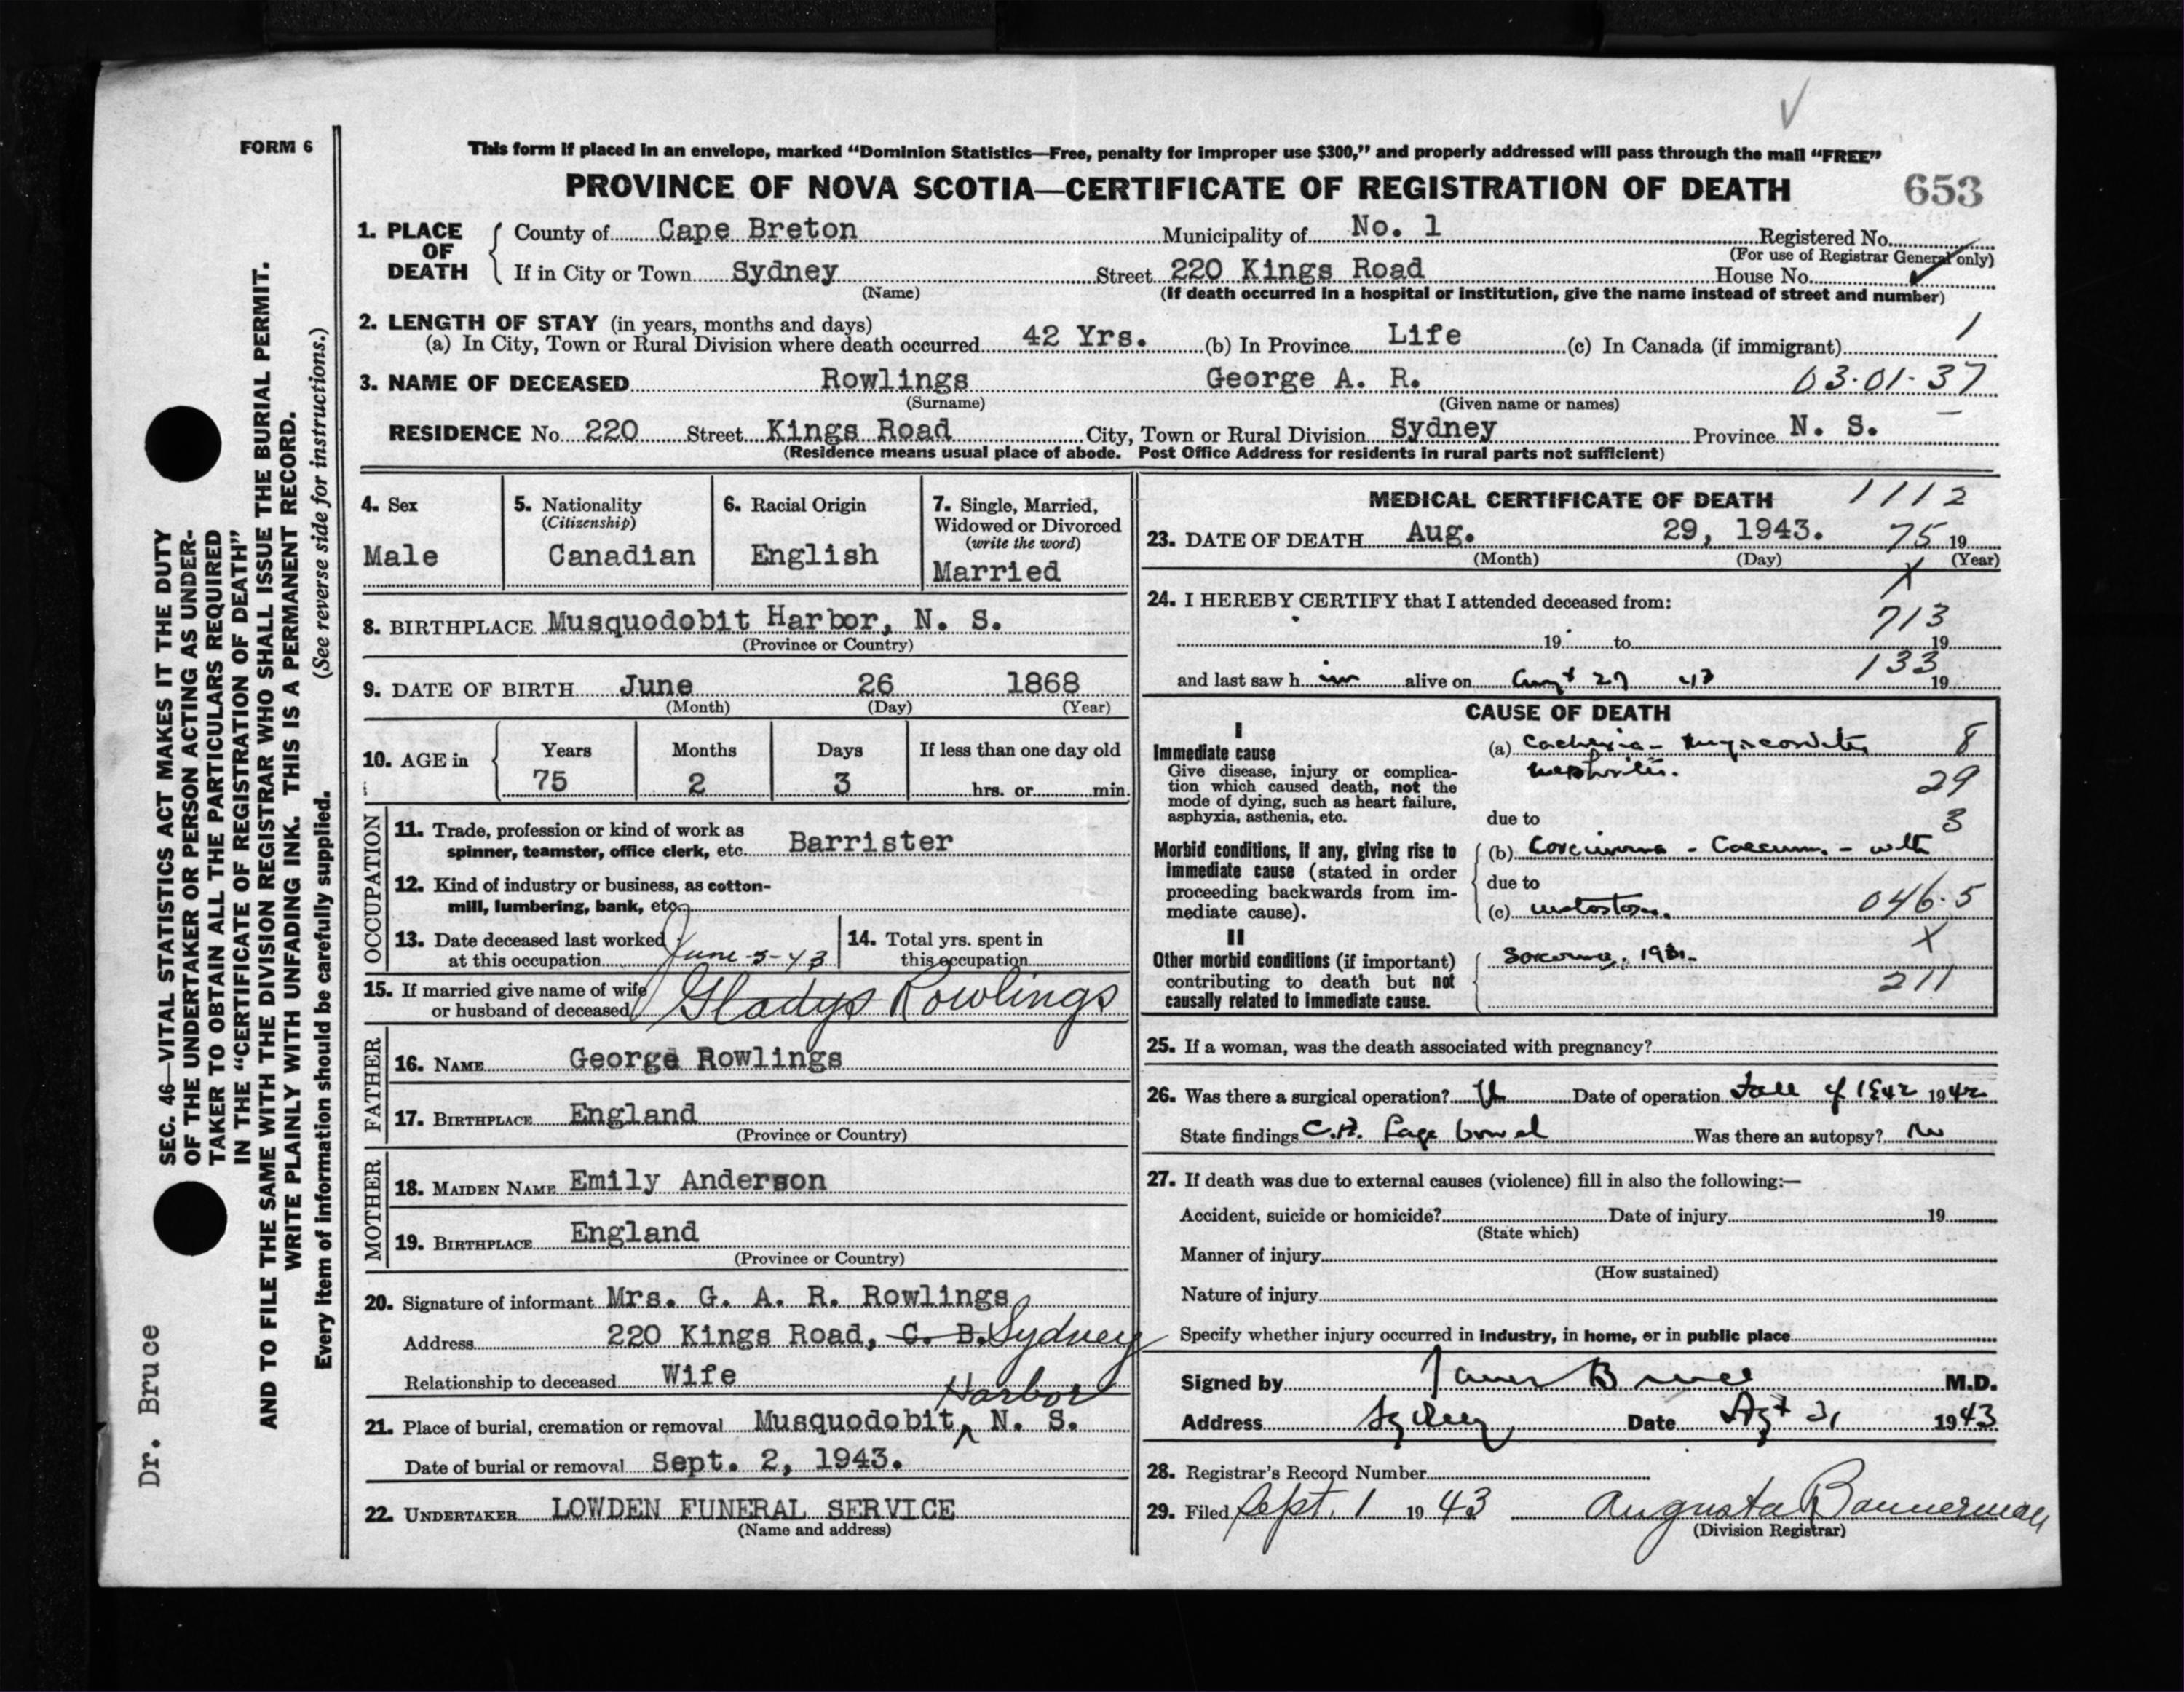 FORM 6
This form if placed in an envelope, marked “Dominion Statistics—Free, penalty for improper use $300,” and properly addressed will pass through the mail “FREE”
PROVINCE OF NOVA SCOTIA—CERTIFICATE OF REGISTRATION OF DEATH 653
1. PLACE OF DEATH
County of Cape Breton Municipality of No. 1 Registered No.
(For use of Registrar General only)
If in City or Town Sydney Street 220 Kings Road House No.
(Name) (If death occurred in a hospital or institution, give the name instead of street and number)
2. LENGTH OF STAY (in years, months and days)
(a) In City, Town or Rural Division where death occurred 42 Yrs. (b) In Province Life (c) In Canada (if immigrant) 1
3. NAME OF DECEASED Rowlings George A. R. 03·01·37
(Surname) (Given name or names)
RESIDENCE No. 220 Street Kings Road City, Town or Rural Division Sydney Province N. S.
(Residence means usual place of abode. Post Office Address for residents in rural parts not sufficient)
4. Sex
Male
5. Nationality
(Citizenship)
Canadian
6. Racial Origin
English
7. Single, Married,
Widowed or Divorced
(write the word)
Married
8. BIRTHPLACE Musquodobit Harbor, N. S.
(Province or Country)
9. DATE OF BIRTH June 26 1868
(Month) (Day) (Year)
10. AGE in
Years Months Days If less than one day old
75 2 3 hrs. or min.
OCCUPATION
11. Trade, profession or kind of work as
spinner, teamster, office clerk, etc. Barrister
12. Kind of industry or business, as cotton-
mill, lumbering, bank, etc.
13. Date deceased last worked
at this occupation June-5-43
14. Total yrs. spent in
this occupation
15. If married give name of wife
or husband of deceased Gladys Rowlings
FATHER
16. NAME George Rowlings
17. BIRTHPLACE England
(Province or Country)
MOTHER
18. MAIDEN NAME Emily Anderson
19. BIRTHPLACE England
(Province or Country)
20. Signature of informant Mrs. G. A. R. Rowlings
Address 220 Kings Road, C. B. Sydney
Relationship to deceased Wife
Harbor
21. Place of burial, cremation or removal Musquodobit, N. S.
Date of burial or removal Sept. 2, 1943.
22. UNDERTAKER LOWDEN FUNERAL SERVICE
(Name and address)
MEDICAL CERTIFICATE OF DEATH 1112
23. DATE OF DEATH Aug. 29, 1943. 75 19
(Month) (Day) (Year)
X
24. I HEREBY CERTIFY that I attended deceased from:
713
19 to 19
133
and last saw h im alive on Augt 29 43 19
CAUSE OF DEATH
I
Immediate cause
Give disease, injury or complica-
tion which caused death, not the
mode of dying, such as heart failure,
asphyxia, asthenia, etc.
(a) Cachexia - myocarditis 8
nephritis. 29
due to 3
Morbid conditions, if any, giving rise to
immediate cause (stated in order
proceeding backwards from im-
mediate cause).
(b) Carcinoma - Caecum. - with
due to
(c) 046·5
X
II
Other morbid conditions (if important)
contributing to death but not
causally related to immediate cause.
Sarcoma, 1931.
211
25. If a woman, was the death associated with pregnancy?
26. Was there a surgical operation? Date of operation Fall of 1942 1942
State findings bowel Was there an autopsy? No
27. If death was due to external causes (violence) fill in also the following:—
Accident, suicide or homicide? Date of injury 19
(State which)
Manner of injury
(How sustained)
Nature of injury
Specify whether injury occurred in industry, in home, or in public place
Signed by James Bruce M.D.
Address Sydney Date 31 1943
28. Registrar's Record Number
29. Filed Sept. 1 1943 Augusta Bannerman
(Division Registrar)
SEC. 46—VITAL STATISTICS ACT MAKES IT THE DUTY
OF THE UNDERTAKER OR PERSON ACTING AS UNDER-
TAKER TO OBTAIN ALL THE PARTICULARS REQUIRED
IN THE “CERTIFICATE OF REGISTRATION OF DEATH”
AND TO FILE THE SAME WITH THE DIVISION REGISTRAR WHO SHALL ISSUE THE BURIAL PERMIT.
WRITE PLAINLY WITH UNFADING INK. THIS IS A PERMANENT RECORD.
Every item of information should be carefully supplied. (See reverse side for instructions.)
Dr. Bruce